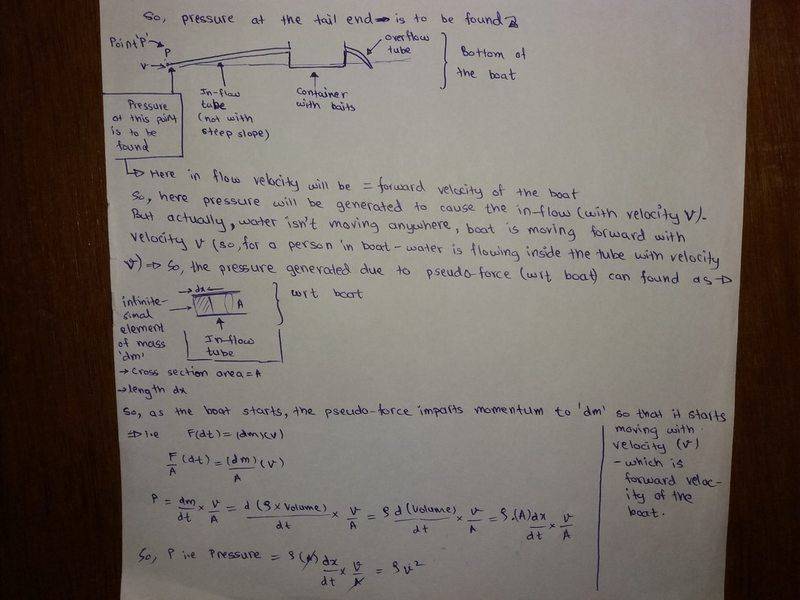 So, pressure at the tail end → is to be found
Point 'P' →
P
V →
In-flow tube (not with steep slope)
container with baits
overflow tube
Bottom of the boat
Pressure at this point is to be found
→ Here in flow velocity will be = forward velocity of the boat
So, here pressure will be generated to cause the in-flow (with velocity V).
But actually, water isn't moving anywhere, boat is moving forward with
velocity V (so, for a person in boat - water is flowing inside the tube with velocity
V) ⇒ So, the pressure generated due to pseudo-force (wrt boat) can found as →
→ dx ←
A
infinite-
simal
element
of mass
'dm'
In-flow
tube
wrt boat
→ Cross section area = A
→ length dx
So, as the boat starts, the pseudo-force imparts momentum to 'dm' so that it starts
moving with
velocity (V)
- which is
forward veloc-
ity of the
boat.
⇒ i.e F(dt) = (dm)(v)
F/A (dt) = (dm)/A (v)
P = dm/dt × v/A = d(ρ × Volume)/dt × v/A = ρ d(Volume)/dt × v/A = ρ.(A)dx/dt × v/A
So, P i.e Pressure = ρ (A) dx/dt × v/A = ρv²